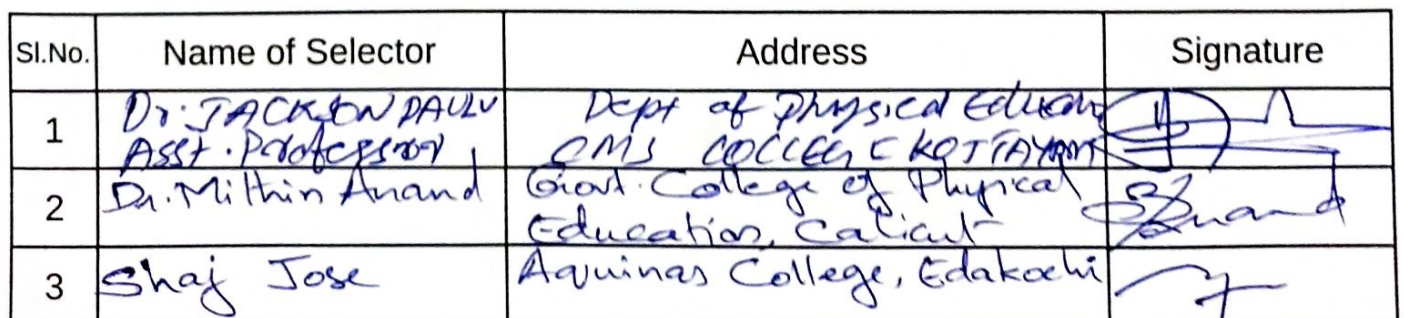 Sl.No. Name of Selector Address Signature
1 Dr. JACKSON PAULV Dept of Physical Education
Asst. Professor CMS COLLEGE KOTTAYAM
2 Dr. Mithin Anand Govt. College of Physical
Education, Calicut
3 Shaj Jose Aquinas College, Edakochi